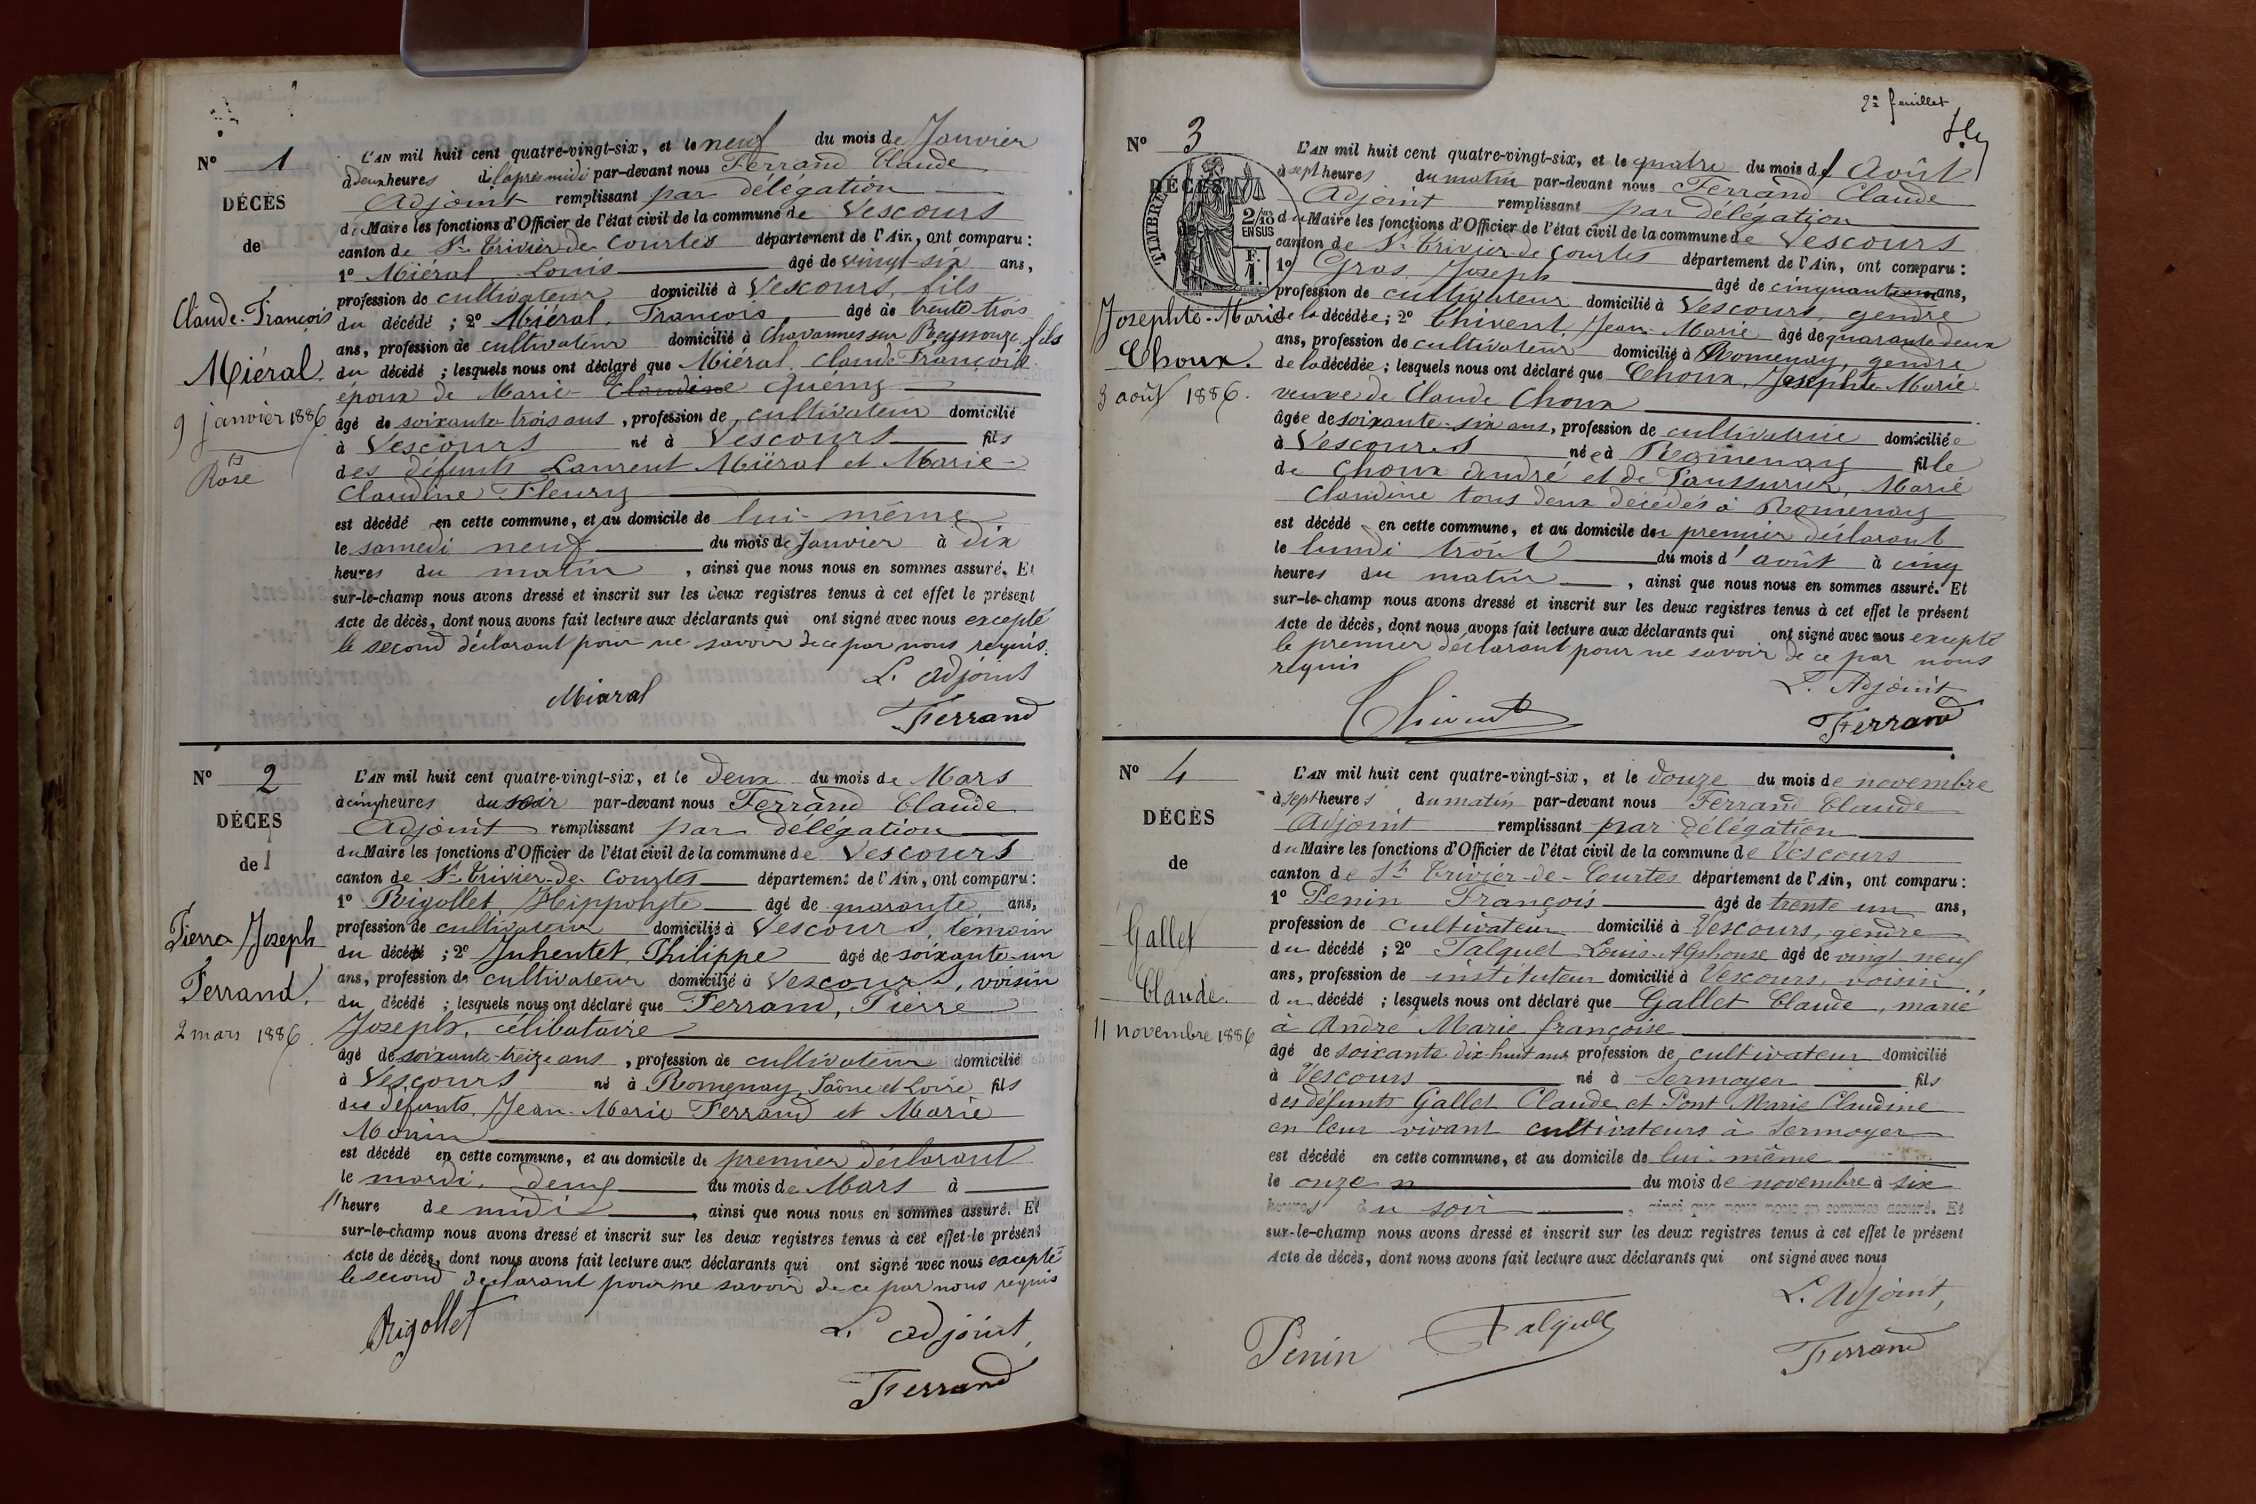 N° 1
DÉCÈS
de
Claude-François
Miéral.
9 janvier 1886
Rose
L'AN mil huit cent quatre-vingt-six, et le neuf du mois de Janvier
à deux heures de l'après midi par-devant nous Ferrand Claude
Adjoint remplissant par délégation
du Maire les fonctions d'Officier de l'état civil de la commune de Vescours
canton de St Trivier de Courtes département de l'Ain, ont comparu :
1° Miéral Louis âgé de vingt-six ans,
profession de cultivateur domicilié à Vescours, fils
du décédé ; 2° Miéral, François âgé de trente trois
ans, profession de cultivateur domicilié à Chavannes sur Reyssouze, fils
du décédé ; lesquels nous ont déclaré que Miéral, Claude François
époux de Marie Claudine
âgé de soixante-trois ans, profession de cultivateur domicilié
à Vescours né à Vescours fils
des défunts Laurent Miéral et Marie-
Claudine Fleury
est décédé en cette commune, et au domicile de lui-même
le samedi neuf du mois de Janvier à dix
heures du matin, ainsi que nous nous en sommes assuré. Et
sur-le-champ nous avons dressé et inscrit sur les deux registres tenus à cet effet le présent
Acte de décès, dont nous avons fait lecture aux déclarants qui ont signé avec nous excepté
le second déclarant pour ne savoir de ce par nous requis.
L'adjoint
Miaral
Ferrand
N° 2
DÉCÈS
de
Pierre Joseph
Ferrand.
2 mars 1886.
L'AN mil huit cent quatre-vingt-six, et le deux du mois de Mars
à cinq heures du soir par-devant nous Ferrand Claude
Adjoint remplissant par délégation
du Maire les fonctions d'Officier de l'état civil de la commune de Vescours
canton de St Trivier-de Courtes département de l'Ain, ont comparu :
1° Rigollet Hippolyte âgé de quarante ans,
profession de cultivateur domicilié à Vescours, témoin
du décédé ; 2° Juhentet Philippe âgé de soixante-un
ans, profession de cultivateur domicilié à Vescours, voisin
du décédé ; lesquels nous ont déclaré que Ferrand, Pierre
Joseph, célibataire
âgé de soixante-treize ans, profession de cultivateur domicilié
à Vescours né à Romenay, Saône et Loire fils
des défunts, Jean-Marie Ferrand et Marie
Monin
est décédé en cette commune, et au domicile de premier déclarant
le mardi, deux du mois de Mars à
heure de midi, ainsi que nous nous en sommes assuré. Et
sur-le-champ nous avons dressé et inscrit sur les deux registres tenus à cet effet le présent
Acte de décès, dont nous avons fait lecture aux déclarants qui ont signé avec nous excepté
le second déclarant pour ne savoir de ce par nous requis
Rigollet
L'adjoint,
Ferrand
2e feuillet
N° 3
DÉCÈS
TIMBRE
2/10 EN SUS
F. 1.
Josephte-Marie
Choux.
3 août 1886.
L'AN mil huit cent quatre-vingt-six, et le quatre du mois d'Août
à sept heures du matin par-devant nous Ferrand Claude
Adjoint remplissant par délégation
du Maire les fonctions d'Officier de l'état civil de la commune de Vescours
canton de St Trivier de Courtes département de l'Ain, ont comparu :
1° Gras Joseph âgé de cinquante ans,
profession de cultivateur domicilié à Vescours, gendre
de la décédée ; 2° Thivent, Jean-Marie âgé de quarante deux
ans, profession de cultivateur domicilié à Romenay, gendre
de la décédée ; lesquels nous ont déclaré que Choux, Josephte Marie
veuve de Claude Choux
âgée de soixante-six ans, profession de cultivatrice domiciliée
à Vescours née à Romenay fille
de Choux André et de Marie
Claudine tous deux décédés à Romenay
est décédé en cette commune, et au domicile du premier déclarant
le lundi trois du mois d'août à cinq
heures du matin, ainsi que nous nous en sommes assuré. Et
sur-le-champ nous avons dressé et inscrit sur les deux registres tenus à cet effet le présent
Acte de décès, dont nous avons fait lecture aux déclarants qui ont signé avec nous excepté
le premier déclarant pour ne savoir de ce par nous
requis
L'Adjoint
Thivent
Ferrand
N° 4
DÉCÈS
de
Gallet
Claude.
11 novembre 1886
L'AN mil huit cent quatre-vingt-six, et le douze du mois de novembre
à sept heures du matin par-devant nous Ferrand Claude
Adjoint remplissant par délégation
du Maire les fonctions d'Officier de l'état civil de la commune de Vescours
canton de St Trivier-de-Courtes département de l'Ain, ont comparu :
1° Penin François âgé de trente un ans,
profession de cultivateur domicilié à Vescours, gendre
du décédé ; 2° Talquet Louis-Alphonse âgé de vingt neuf
ans, profession de instituteur domicilié à Vescours, voisin
du décédé ; lesquels nous ont déclaré que Gallet Claude, marié
à André Marie françoise
âgé de soixante dix-huit ans profession de cultivateur domicilié
à Vescours né à Sermoyer fils
des défunts Gallet Claude et Pont Marie Claudine
en leur vivant cultivateurs à Sermoyer
est décédé en cette commune, et au domicile de lui-même
le onze du mois de novembre à six
heures du soir, ainsi que nous nous en sommes assuré. Et
sur-le-champ nous avons dressé et inscrit sur les deux registres tenus à cet effet le présent
Acte de décès, dont nous avons fait lecture aux déclarants qui ont signé avec nous
L'Adjoint,
Penin
Talquet
Ferrand